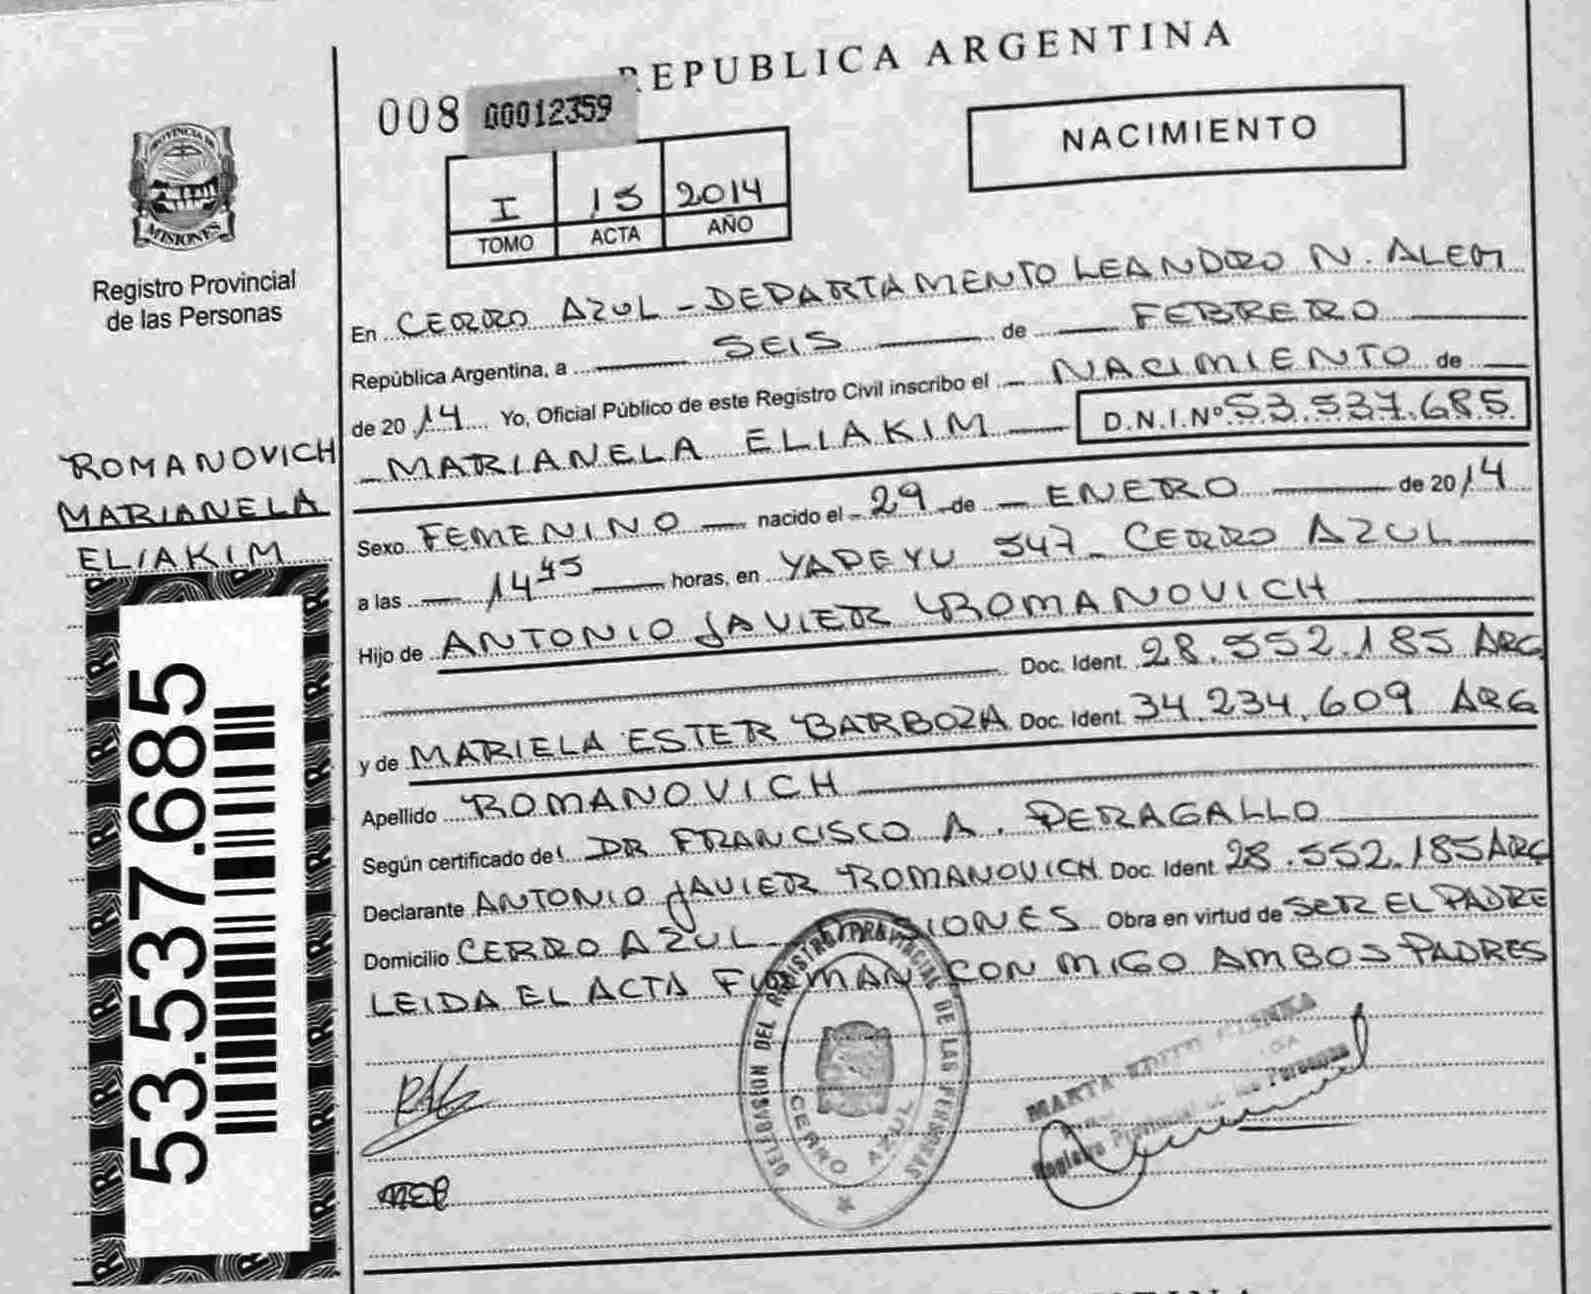 REPUBLICA ARGENTINA
008 00012359
NACIMIENTO
I 15 2014
TOMO ACTA AÑO
PROVINCIA DE
MISIONES
Registro Provincial
de las Personas
ROMANOVICH
MARIANELA
ELIAKIM
53.537.685
En CERRO AZUL - DEPARTAMENTO LEANDRO N. ALEM
República Argentina, a SEIS de FEBRERO
de 2014 Yo, Oficial Público de este Registro Civil inscribo el NACIMIENTO de
MARIANELA ELIAKIM D.N.I.Nº 53.537.685
Sexo FEMENINO nacido el 29 de ENERO de 2014
a las 14 45 horas, en YAPEYU 547 - CERRO AZUL
Hijo de ANTONIO JAVIER ROMANOVICH
Doc. Ident. 28.552.185 ARG
y de MARIELA ESTER BARBOZA Doc. Ident. 34.234.609 ARG
Apellido ROMANOVICH
Según certificado del DR FRANCISCO A. PERAGALLO
Declarante ANTONIO JAVIER ROMANOVICH Doc. Ident. 28.552.185 ARG
Domicilio CERRO AZUL - MISIONES Obra en virtud de SER EL PADRE
LEIDA EL ACTA FIRMAN CON MIGO AMBOS PADRES
DELEGASION DEL REGISTRO PROVINCIAL DE LAS PERSONAS
CERRO AZUL
MARTA EDITH
Registro Provincial de las Personas